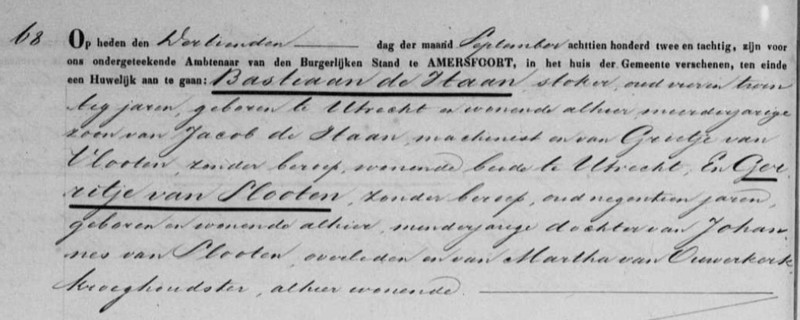 68
Op heden den Dertienden dag der maand September achttien honderd twee en tachtig, zijn voor
ons ondergeteekende Ambtenaar van den Burgerlijken Stand te AMERSFOORT, in het huis der Gemeente verschenen, ten einde
een Huwelijk aan te gaan: Bastiaan de Haan, stoker, oud vier en twin
tig jaren, geboren te Utrecht en wonende alhier, meerderjarige
zoon van Jacob de Haan, machinist en van Grietje van
Vlooten, zonder beroep, wonende beide te Utrecht, En Ger
ritje van Slooten, zonder beroep, oud negentien jaren,
geboren en wonende alhier, minderjarige dochter van Johan
nes van Slooten, overleden en van Martha van Ouwerkerk
kroeghoudster, alhier wonende.